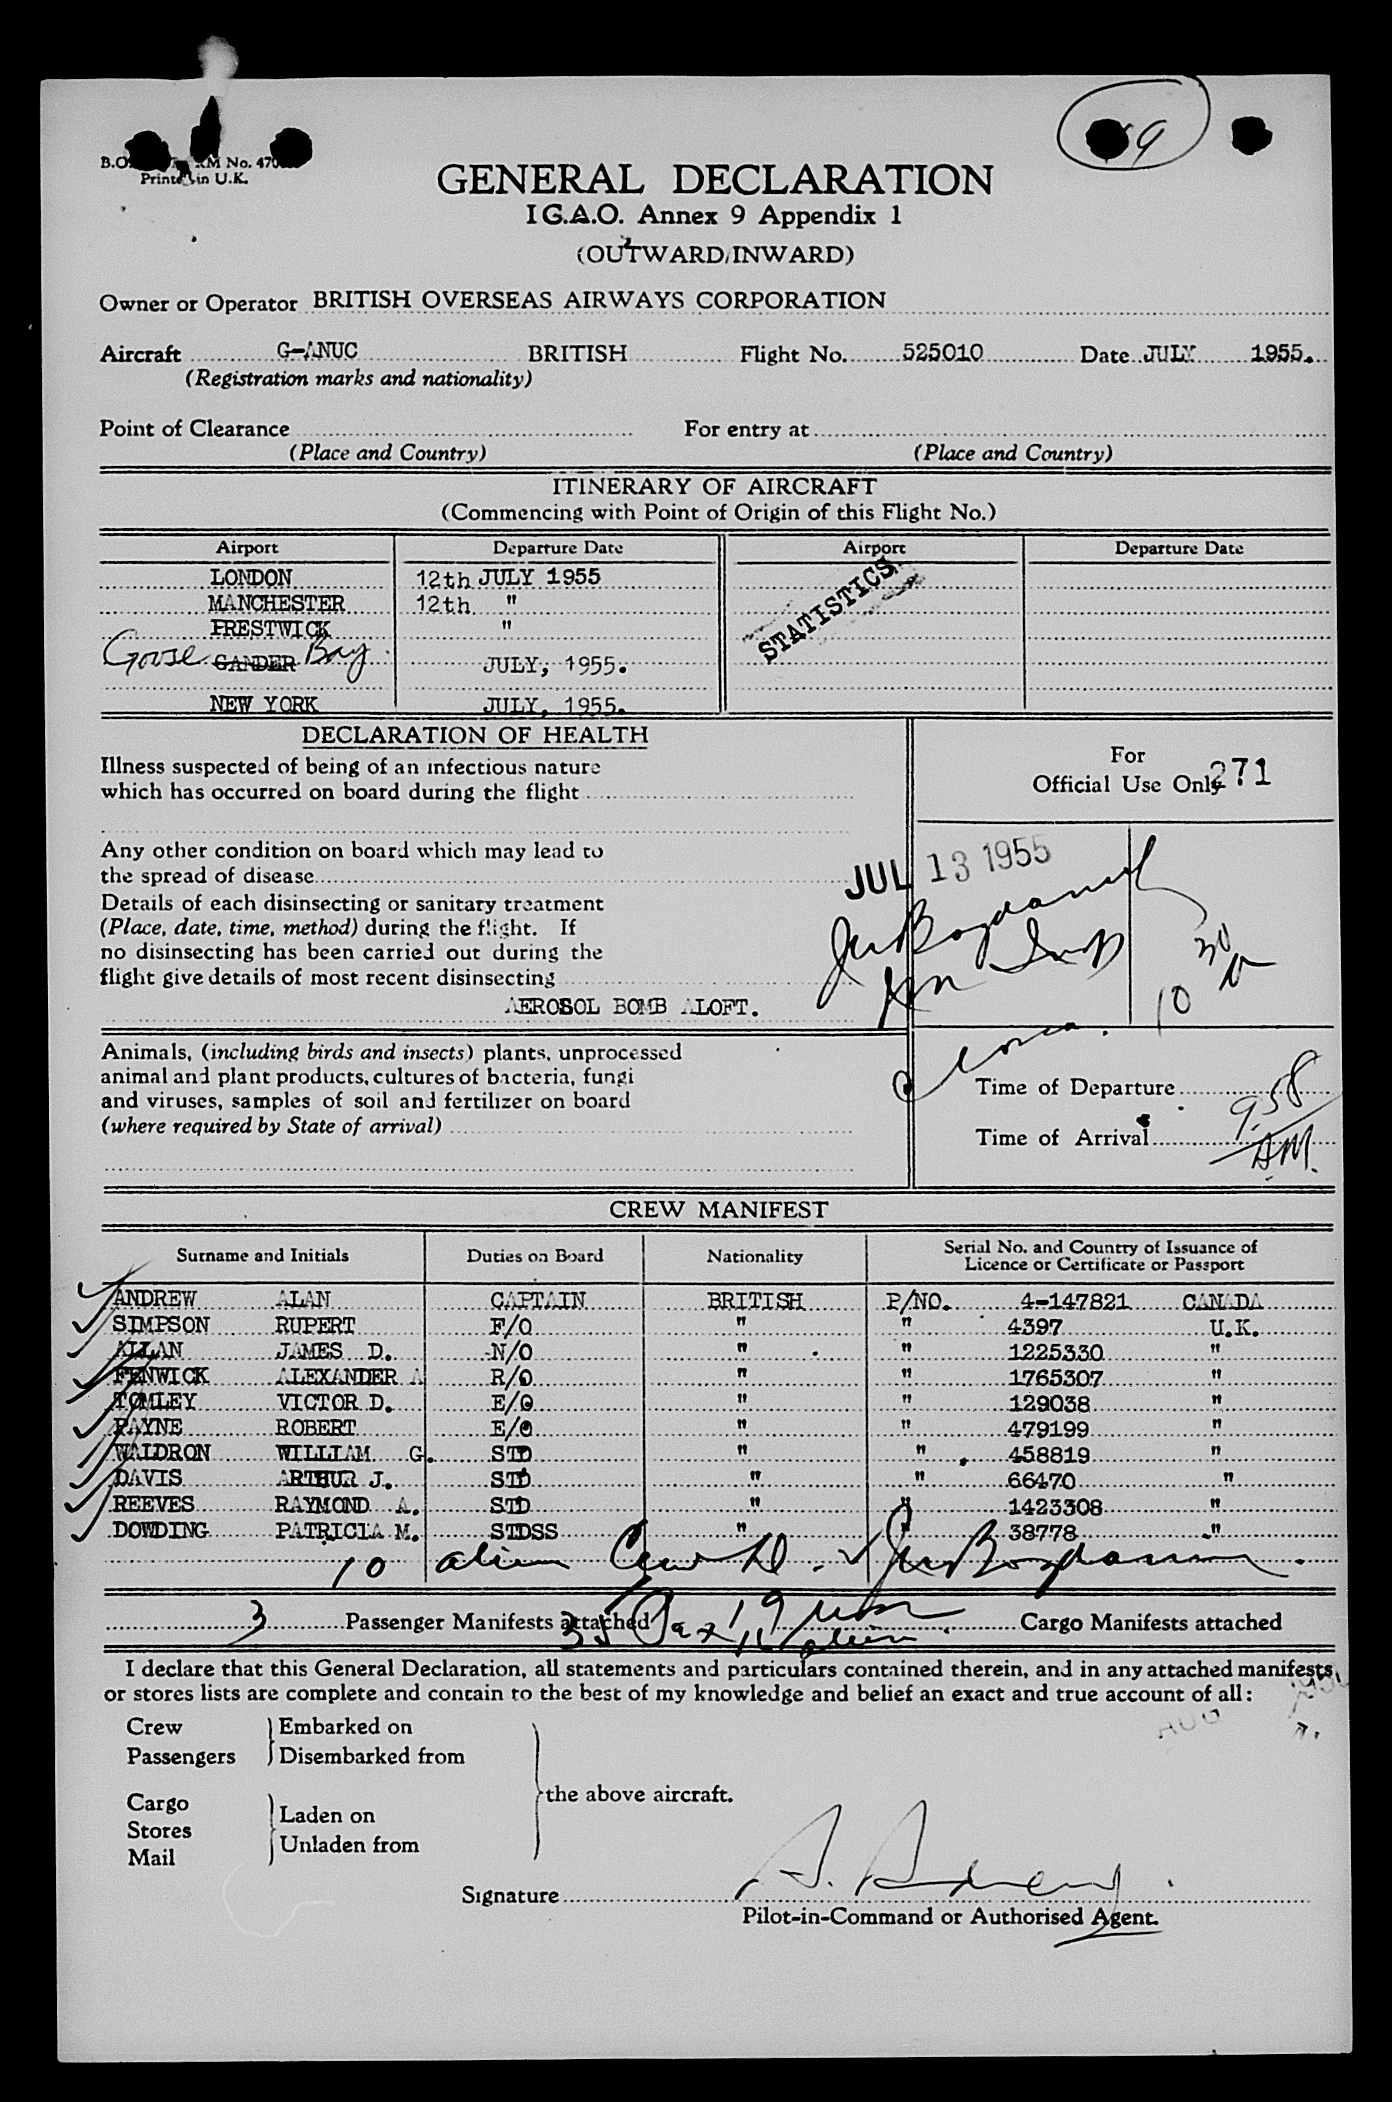 GENERAL DECLARATION
I.C.A.O. Annex 9 Appendix 1
(OUTWARD/INWARD)
Printed in U.K.
Owner or Operator BRITISH OVERSEAS AIRWAYS CORPORATION
Aircraft G-ANUC BRITISH Flight No. 525010 Date JULY 1955.
(Registration marks and nationality)
Point of Clearance For entry at
(Place and Country) (Place and Country)
ITINERARY OF AIRCRAFT
(Commencing with Point of Origin of this Flight No.)
Airport Departure Date Airport Departure Date
LONDON 12th JULY 1955
MANCHESTER 12th "
PRESTWICK "
Goose GANDER Bay JULY, 1955.
NEW YORK JULY, 1955.
STATISTICS
DECLARATION OF HEALTH
Illness suspected of being of an infectious nature
which has occurred on board during the flight
Any other condition on board which may lead to
the spread of disease
Details of each disinsecting or sanitary treatment
(Place, date, time, method) during the flight. If
no disinsecting has been carried out during the
flight give details of most recent disinsecting
AEROSOL BOMB ALOFT.
For
Official Use Only 271
JUL 13 1955
10
Animals, (including birds and insects) plants, unprocessed
animal and plant products, cultures of bacteria, fungi
and viruses, samples of soil and fertilizer on board
(where required by State of arrival)
Time of Departure
Time of Arrival 9.58
AM.
CREW MANIFEST
Surname and Initials Duties on Board Nationality Serial No. and Country of Issuance of
Licence or Certificate or Passport
ANDREW ALAN CAPTAIN BRITISH P/NO. 4-147821 CANADA
SIMPSON RUPERT F/O " " 4397 U.K.
ALLAN JAMES D. N/O " " 1225330 "
FENWICK ALEXANDER A R/O " " 1765307 "
TOMLEY VICTOR D. E/O " " 129038 "
PAYNE ROBERT E/O " " 479199 "
WALDRON WILLIAM G. STD " " 458819 "
DAVIS ARTHUR J. STD " " 66470 "
REEVES RAYMOND A. STD " " 1423308 "
DOWDING PATRICIA M. STDSS " " 38778 "
10 alien Crew
3 Passenger Manifests attached 35 Pax Cargo Manifests attached
I declare that this General Declaration, all statements and particulars contained therein, and in any attached manifests,
or stores lists are complete and contain to the best of my knowledge and belief an exact and true account of all:
Crew Embarked on
Passengers Disembarked from
the above aircraft.
Cargo
Stores
Mail
Laden on
Unladen from
Signature
Pilot-in-Command or Authorised Agent.